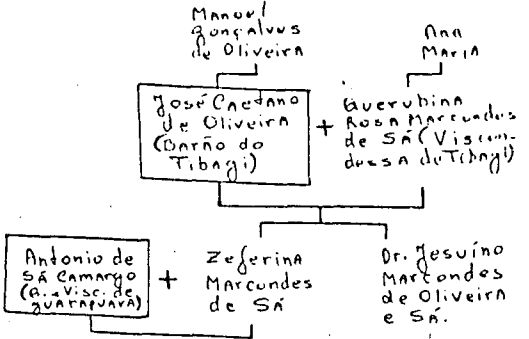 Manoel
Gonçalves
de Oliveira
Ana
Maria
José Caetano
de Oliveira
(Barão do
Tibagi)
+
Querubina
Rosa Marcondes
de Sá (Viscon-
dessa de Tibagi)
Antonio de
Sá Camargo
(B. e Visc. de
Guarapuava)
+
Zeferina
Marcondes
de Sá
Dr. Jesuíno
Marcondes
de Oliveira
e Sá.